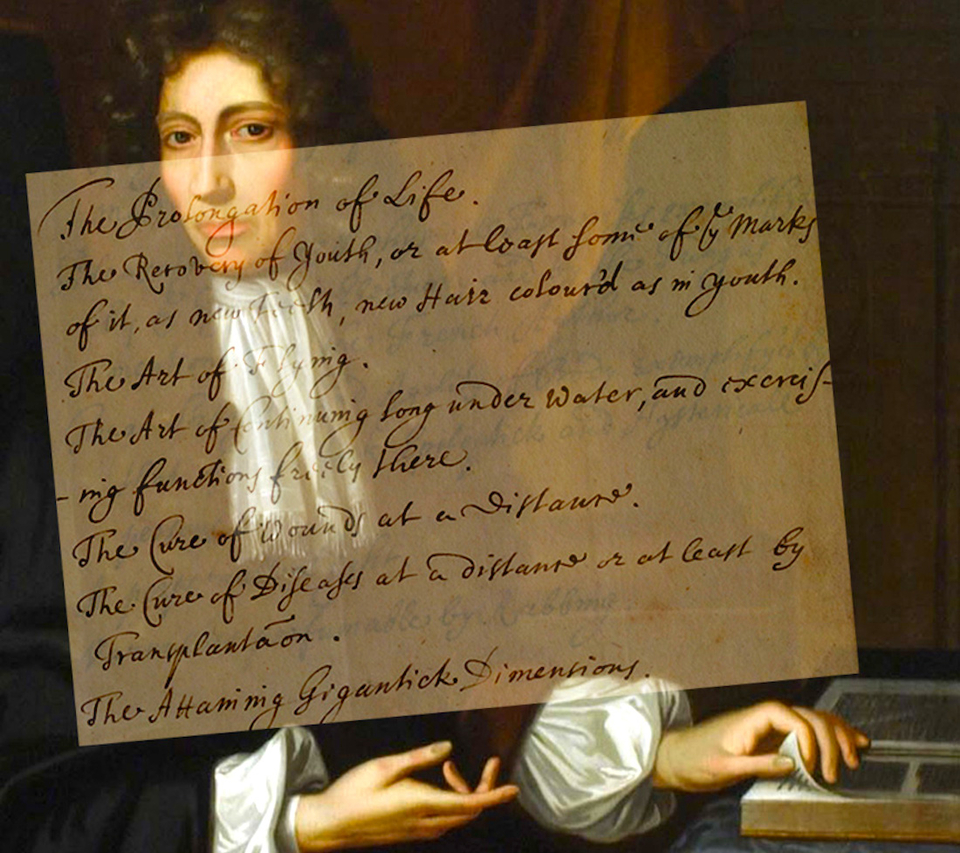 The Prolongation of Life.
The Recovery of Youth, or at least some of yͤ Marks
of it, as new Teeth, new Hair colour'd as in youth.
The Art of Flying.
The Art of Continuing long under water, and exercis-
-ing functions freely there.
The Cure of Wounds at a Distance.
The Cure of Diseases at a distance or at least by
Transplantaōn.
The Attaining Gigantick Dimensions.